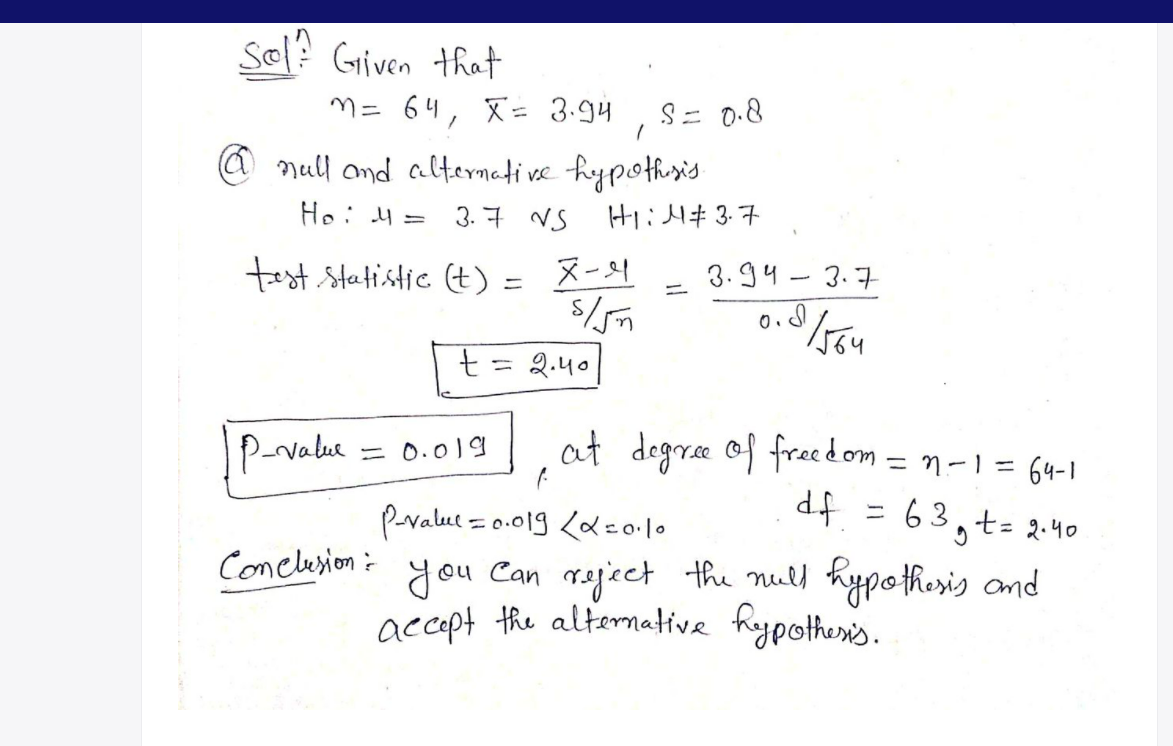 Solⁿ: Given that
n = 64, x̄ = 3.94, s = 0.8
(a) null and alternative hypothesis
H0: μ = 3.7 vs H1: μ ≠ 3.7
test statistic (t) = (x̄ - μ) / (s/√n) = (3.94 - 3.7) / (0.8/√64)
t = 2.40
P-value = 0.019, at degree of freedom = n-1 = 64-1
df = 63, t = 2.40
P-value = 0.019 < α = 0.10
Conclusion: you can reject the null hypothesis and
accept the alternative hypothesis.